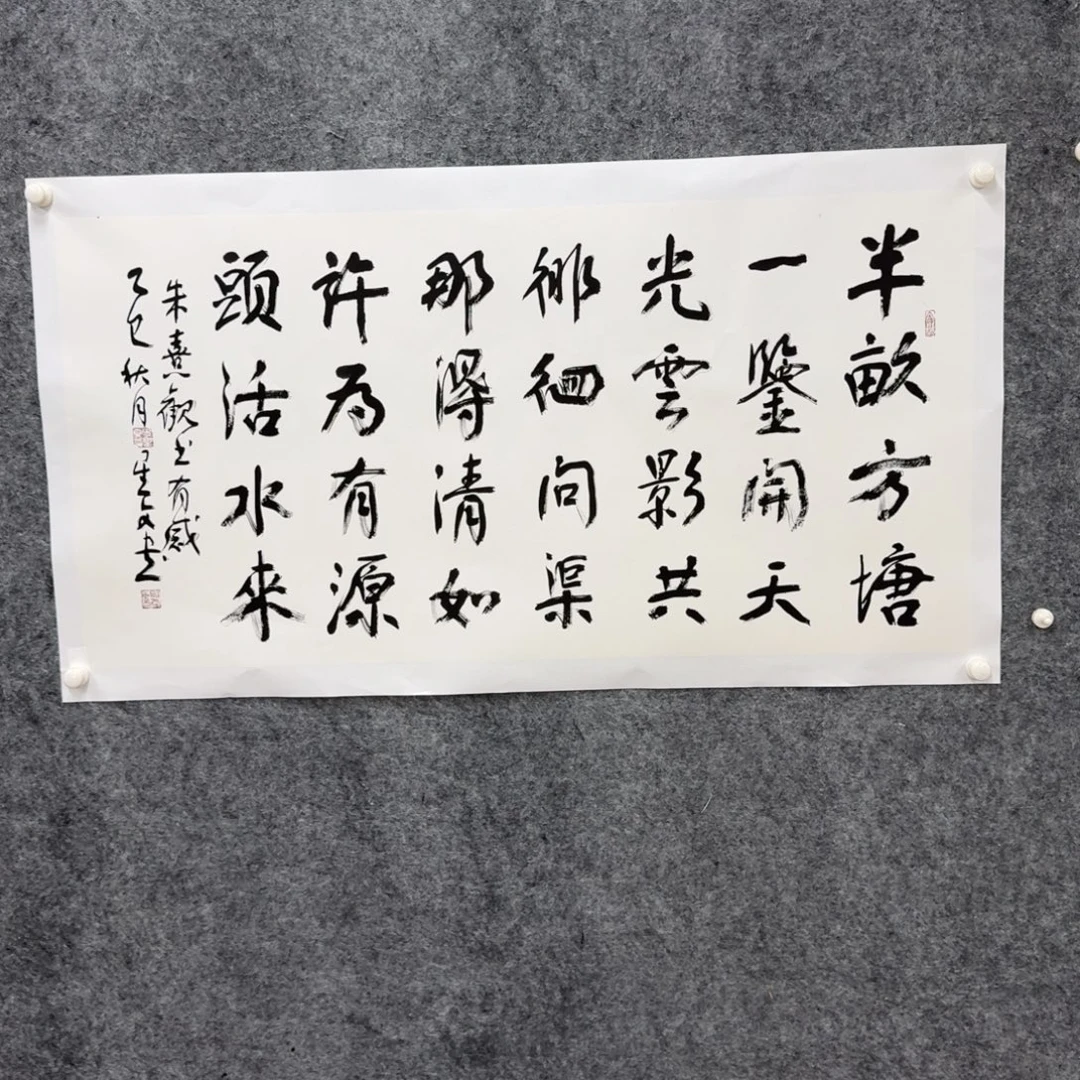 半畝方塘
一鑒開天
光雲影共
徘徊問渠
那得清如
許為有源
頭活水來
朱熹觀書有感
乙巳秋月
書